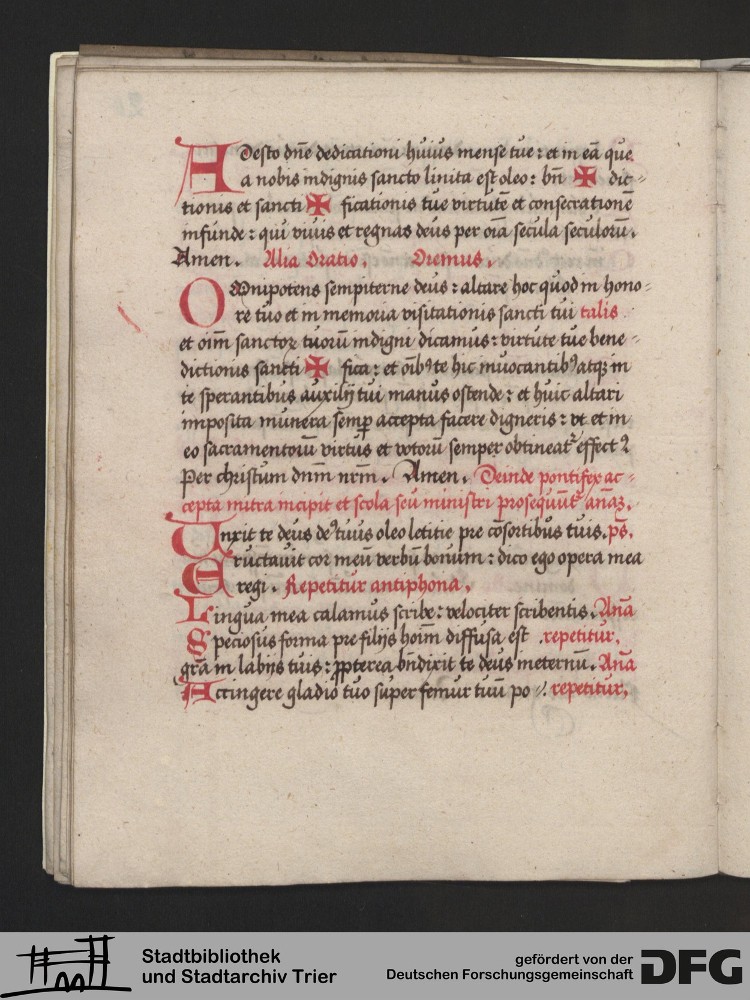 Adesto dn̄e dedicationi huius mense tue : et in eā que
a nobis indignis sancto linita est oleo : bn̄ ✠ dic-
tionis et sancti ✠ ficationis tue virtutē et consecrationē
infunde : qui viuis et regnas deus per oīa secula seculorū.
Amen. Alia Oratio. Oremus.
Omnipotens sempiterne deus : altare hoc quod in hono-
re tuo et in memoria visitationis sancti tui talis
et oīm sanctoꝝ tuorū indigni dicamus : virtute tue bene-
dictionis sancti ✠ fica : et oībꝰ te hic inuocantibꝰ atqꝫ in
te sperantibus auxilij tui manus ostende : et huic altari
imposita munera semꝑ accepta facere digneris : vt et in
eo sacramentorū virtus et votorū semper obtineat᷑ effectꝰ
Per christum dnm̄ nrm̄. Amen. Deinde pontifex ac-
cepta mitra incipit et scola seu ministri prosequūt᷑ anāꝫ.
Unxit te deus deꝰ tuus oleo letitie pre cōsortibus tuis. ps̄.
Eructauit cor meū verbū bonum : dico ego opera mea
regi. Repetitur antiphona.
Lingua mea calamus scribe : velociter scribentis. Anā
Speciosus forma pre filijs hoīm diffusa est repetitur.
grā in labijs tuis : ꝓpterea bn̄dixit te deus ineternū. Anā
Accingere gladio tuo super femur tuū po-. repetitur.
Stadtbibliothek
und Stadtarchiv Trier
gefördert von der
Deutschen Forschungsgemeinschaft
DFG